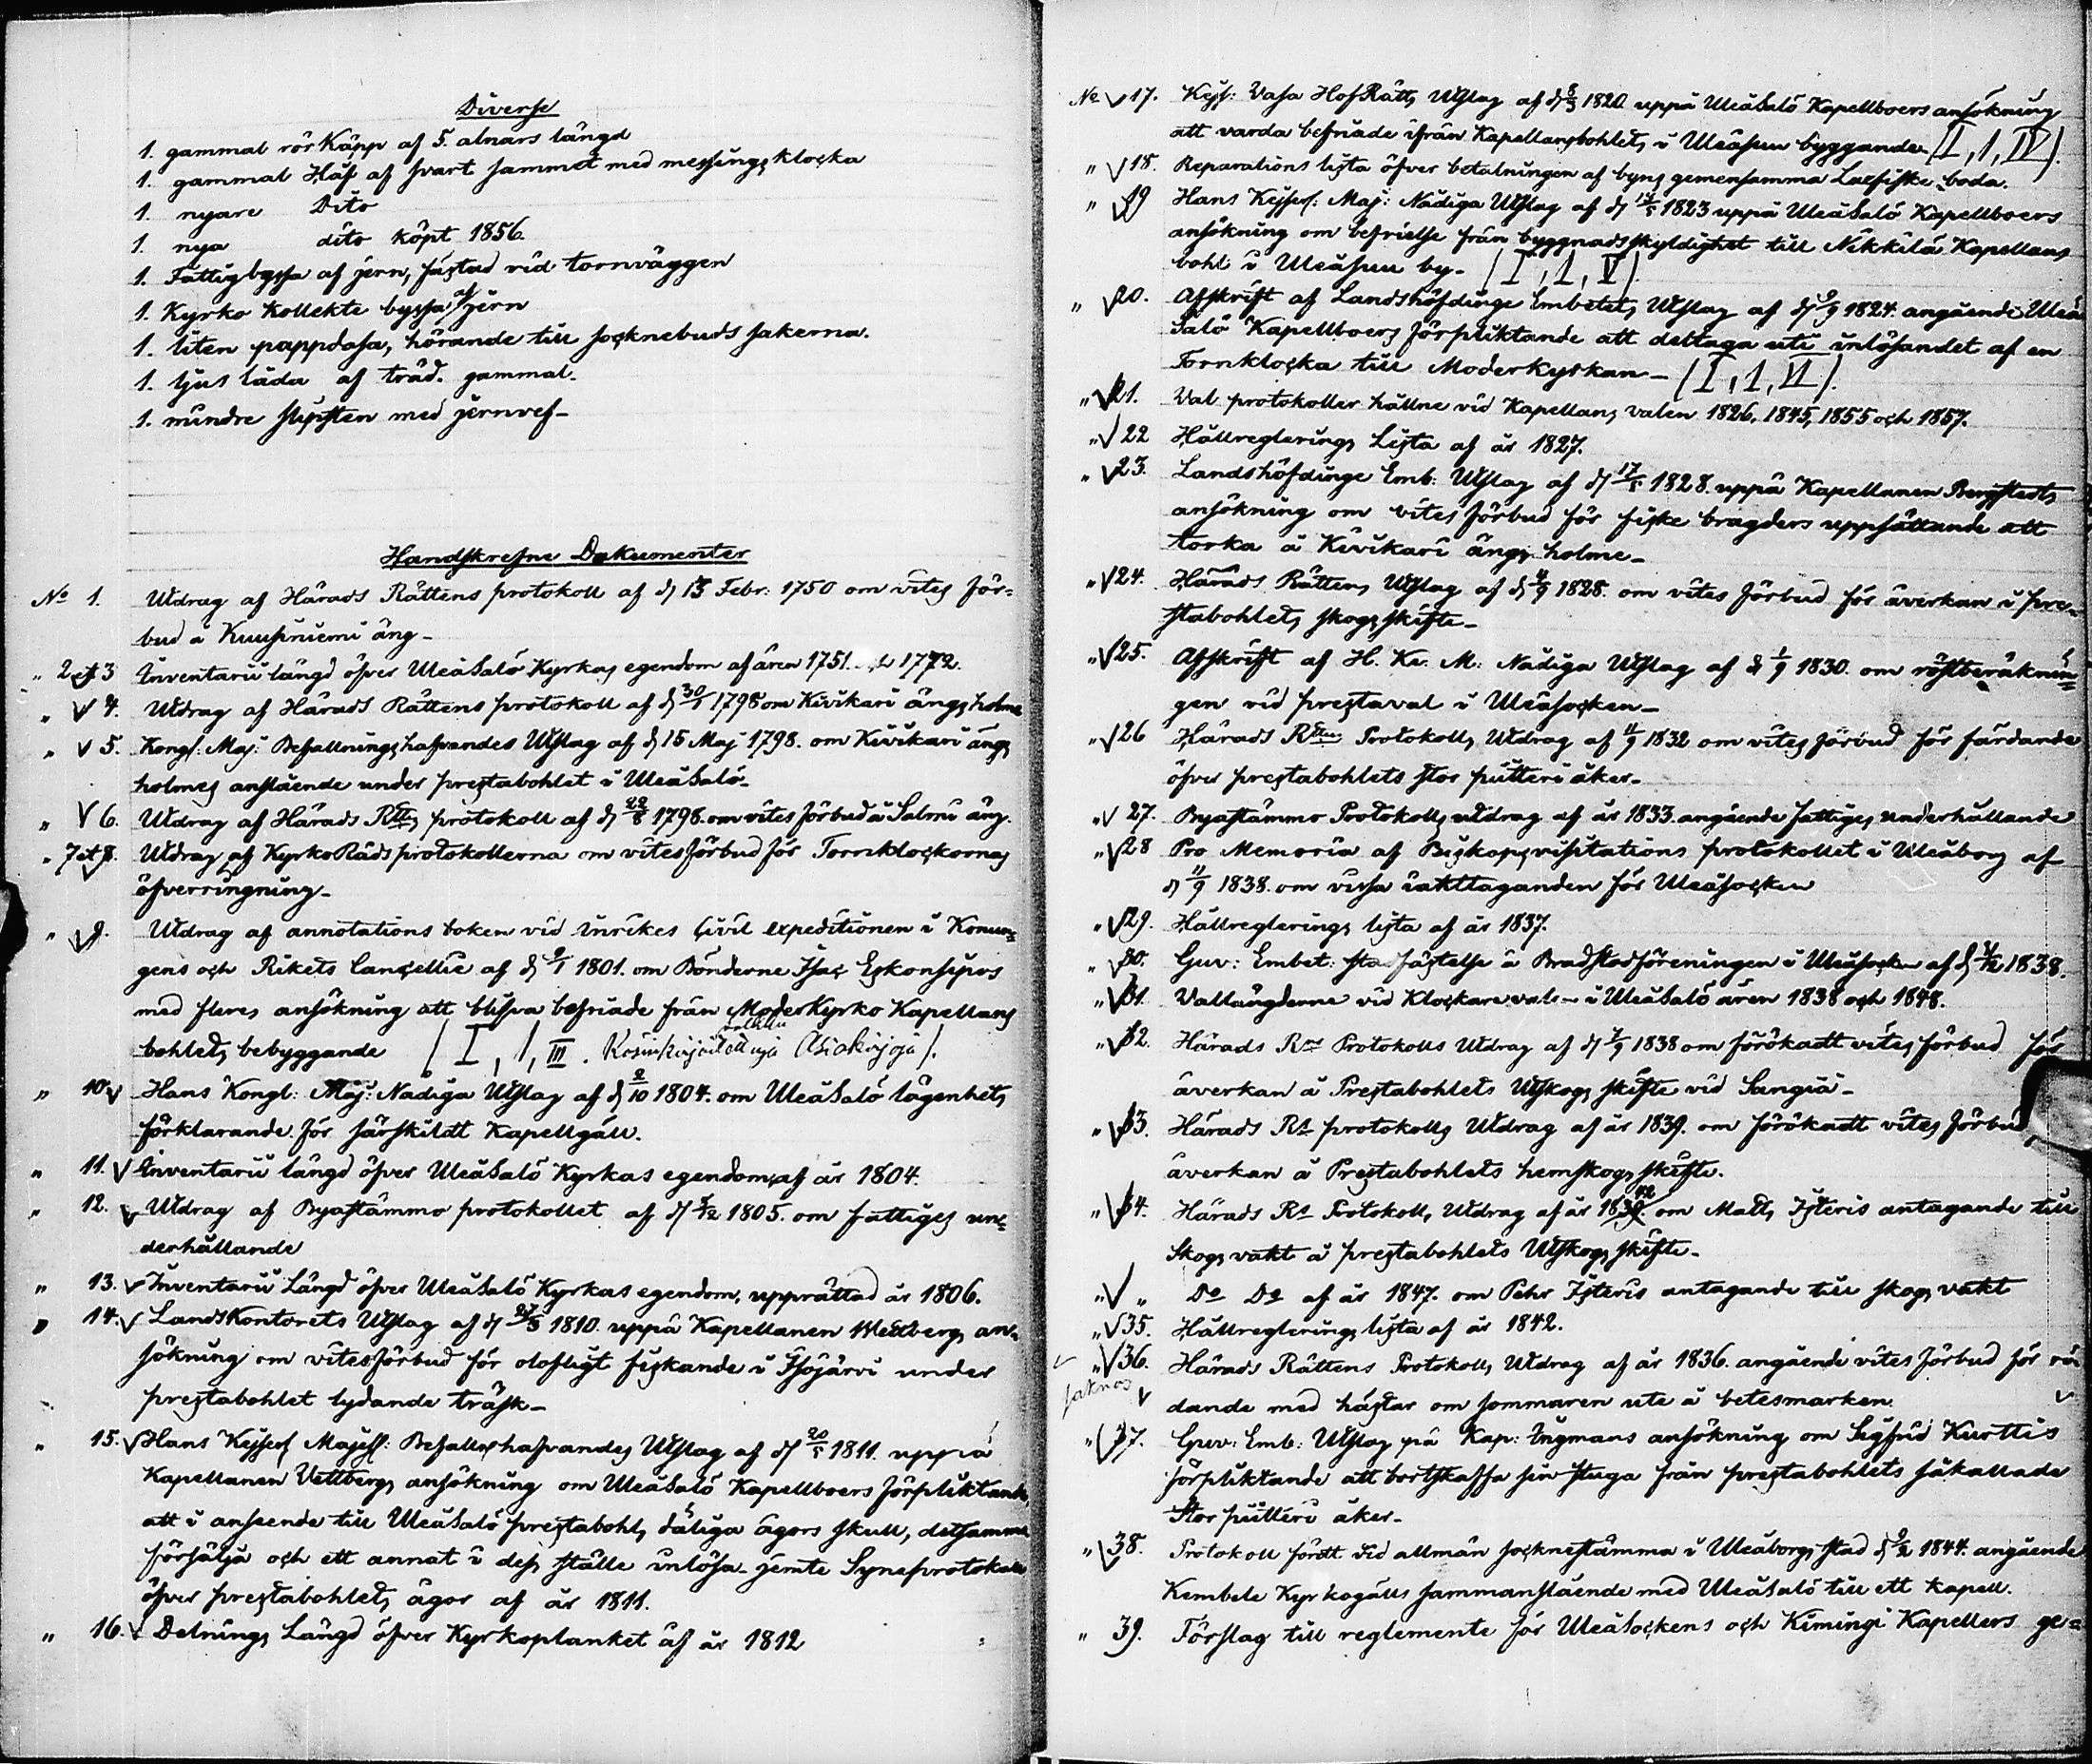 Diverse
1. gammal rör Käpp af 5. alnars längd
1. gammal Håf af svart sammet med messings klocka
1. nyare Dito
1. nya dito köpt 1856.
1. Fattigbyssa af jern, fästad vid tornväggen
1. Kyrko Kollekte byssa af jern
1. liten pappdosa, hörande till socknebuds sakerna.
1. ljus låda af träd. gammal.
1. mindre slipsten med jernvef-
Handskrefne Dokumenter
No 1. Utdrag af Härads Rättens protokoll af d. 13 Febr: 1750 om vites för=
bud å Kuusiniemi äng-
" 2 et 3 Inventarii längd öfver Uleåsalo Kyrkas egendom af åren 1751. et 1772.
" V 4. Utdrag af Härads Rättens protokoll af d. 30/1 1798 om Kivikari ängsholme
" V 5. Kongl: Maj: Befallningshafvandes Utslag af d. 15 Maj 1798. om Kivikari ängs
holmes anslående under prestabohlet i Uleåsalo-
" V 6. Utdrag af Härads Rttns protokoll af d. 1798. om vites förbud å Salmi äng.
" 7 et 8. Utdrag af KyrkoRåds protokollerna om vites förbud för Tornklockornas
öfverringning-
" V 9. Utdrag af annotations boken vid inrikes Civil expeditionen i Konun=
gens och Rikets Cancellie af d. 1801. om Bönderne Isac Eskonsipos
med fleres ansökning att blifva befriade från ModerKyrko Kapellans
bohlets bebyggande (I, 1, III. Asiakirjoja).
" 10 V Hans Kongl: Maj: Nådiga Utslag af d. 2/10 1804. om Uleåsalo lägenhets
förklarande för särskildt Kapellgäll.
" 11. V Inventarii längd öfver Uleåsalo Kyrkas egendom, af år 1804.
" 12. V Utdrag af Byastämmo protokollet af d. 1805. om fattiges un=
derhållande
" 13. V Inventarii Längd öfver Uleåsalo Kyrkas egendom, upprättad år 1806.
" 14. V LandsKontorets Utslag af d. 27/3 1810. uppå Kapellanen Wettbergs an=
sökning om vitesförbud för olofligt fiskande i Isojärvi under
prestabohlet lydande träsk-
" 15. V Hans Kejserl Majest: Befallnshafvandes Utslag af d. 20/5 1811. uppå
Kapellanen Vettbergs ansökning om Uleåsalo Kapellboers förpliktande,
att i anseende till Uleåsalo prestabohls dåliga ägors skull, detsamma
försälja och ett annat i dess ställe inlösa jemte Syneprotokoll
öfver prestabohlets ägor af år 1811.
" 16. V Delnings Längd öfver Kyrkoplanket af år 1812
No V 17. Kejs: Vasa HofRätts Utslag af d. 8/3 1820 uppå Uleåsalo Kapellboers ansökning
att varda befriade ifrån Kapellansbohlets i Uleåsuu byggande- (I, 1, IV).
" V 18. Reparations lista öfver betalningen af byns gemensamma Laxfiske boda.
" V 19 Hans Kejserl: Maj: Nådiga Utslag af d. 1823 uppå Uleåsalo Kapellboers
ansökning om befrielse från byggnadsskyldighet till Nikkilä Kapellans
bohl i Uleåsuu by- (I, 1, V).
" V 20. Afskrift af Landshöfdinge Embetets Utslag af d. 1824. angående Uleå
Salo Kapellboers förpliktande att deltaga uti inlösandet af en
Tornklocka till Moderkyrkan- (I, 1, VI).
" V 21. Val protokoller hållne vid Kapellans valen 1826, 1845, 1855 och 1857.
" V 22 Hållreglerings Lista af år 1827.
" V 23. Landshöfdinge Emb: Utslag af d. 17/5 1828. uppå Kapellanen Bergstedts
ansökning om vites förbud för fiske bragders uppsättande att
torka å Kivikari ängs holme-
" V 24. Härads Rättens Utslag af d. 4/9 1828. om vites förbud för åverkan i pre=
stabohlets skogs skifte-
" V 25. Afskrift af H. Ke. M: Nådiga Utslag af d. 1/9 1830. om röstberäknin=
gen vid prestaval i Uleåsocken-
" V 26 Härads Rttns Protokolls Utdrag af 1832 om vites förbud för färdande
öfver prestabohlets stor pütteri åker-
" V 27. Byastämmo Protokolls utdrag af år 1833. angående fattiges underhållande
" V 28 Pro Memoria af Biskopsvisitations protokollet i Uleåborg af
d. 1838. om vissa iakttaganden för Uleåsocken
" V 29. Hållreglerings lista af år 1837.
" V 30. Guv: Embet: stadfästelse å Bradstodföreningen i Uleåsocken af d. 1838.
" V 31. Vallängderne vid Klockarevalen i Uleåsalo åren 1838 och 1848.
" V 32. Härads Rns Protokolls Utdrag af d. 1838 om förökadt vites förbud för
åverkan å Prestabohlets Utskogs skifte vid Sangiä-
" V 33. Härads Rs protokolls Utdrag af år 1839. om förökadt vites förbud,
åverkan å Prestabohlets hemskogs skifte.
" V 34. Härads Rs Protokolls Utdrag af år 1842 om Matts Isteris antagande till
Skogs vakt å prestabohlets Utskogs skifte-
" V " Do Do af år 1847. om Pehr Isteris antagande till skogs vakt
" V 35. Hållreglerings lista af år 1842.
" V 36. Härads Rättens Protokolls Utdrag af år 1836. angående vites förbud för ri
saknas V dande med hästar om sommaren ute å betesmarken. V
" V 37. Guv: Emb: Utslag på Kap: Ingmans ansökning om Sigfrid Kurttis
förpliktande att bortskaffa sin stuga från prestabohlets såkallade
Stor pütteri åker-
" V 38. Protokoll fördt vid allmän socknestämma i Uleåborgs stad d. 1844. angående
Kembele Kyrkogälls sammanslående med Uleåsalo till ett kapell.
" 39. Förslag till reglemente för Uleåsockens och Kimingi Kapellers ge=